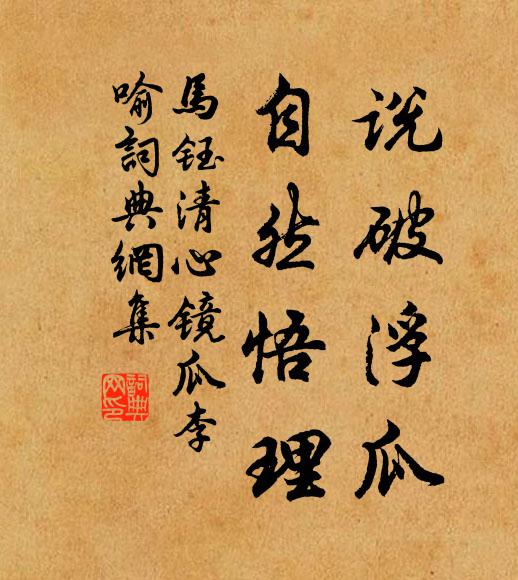 说破浮瓜
自然悟理
馬鈺清心镜瓜李
喻詞典網集
詞典網印